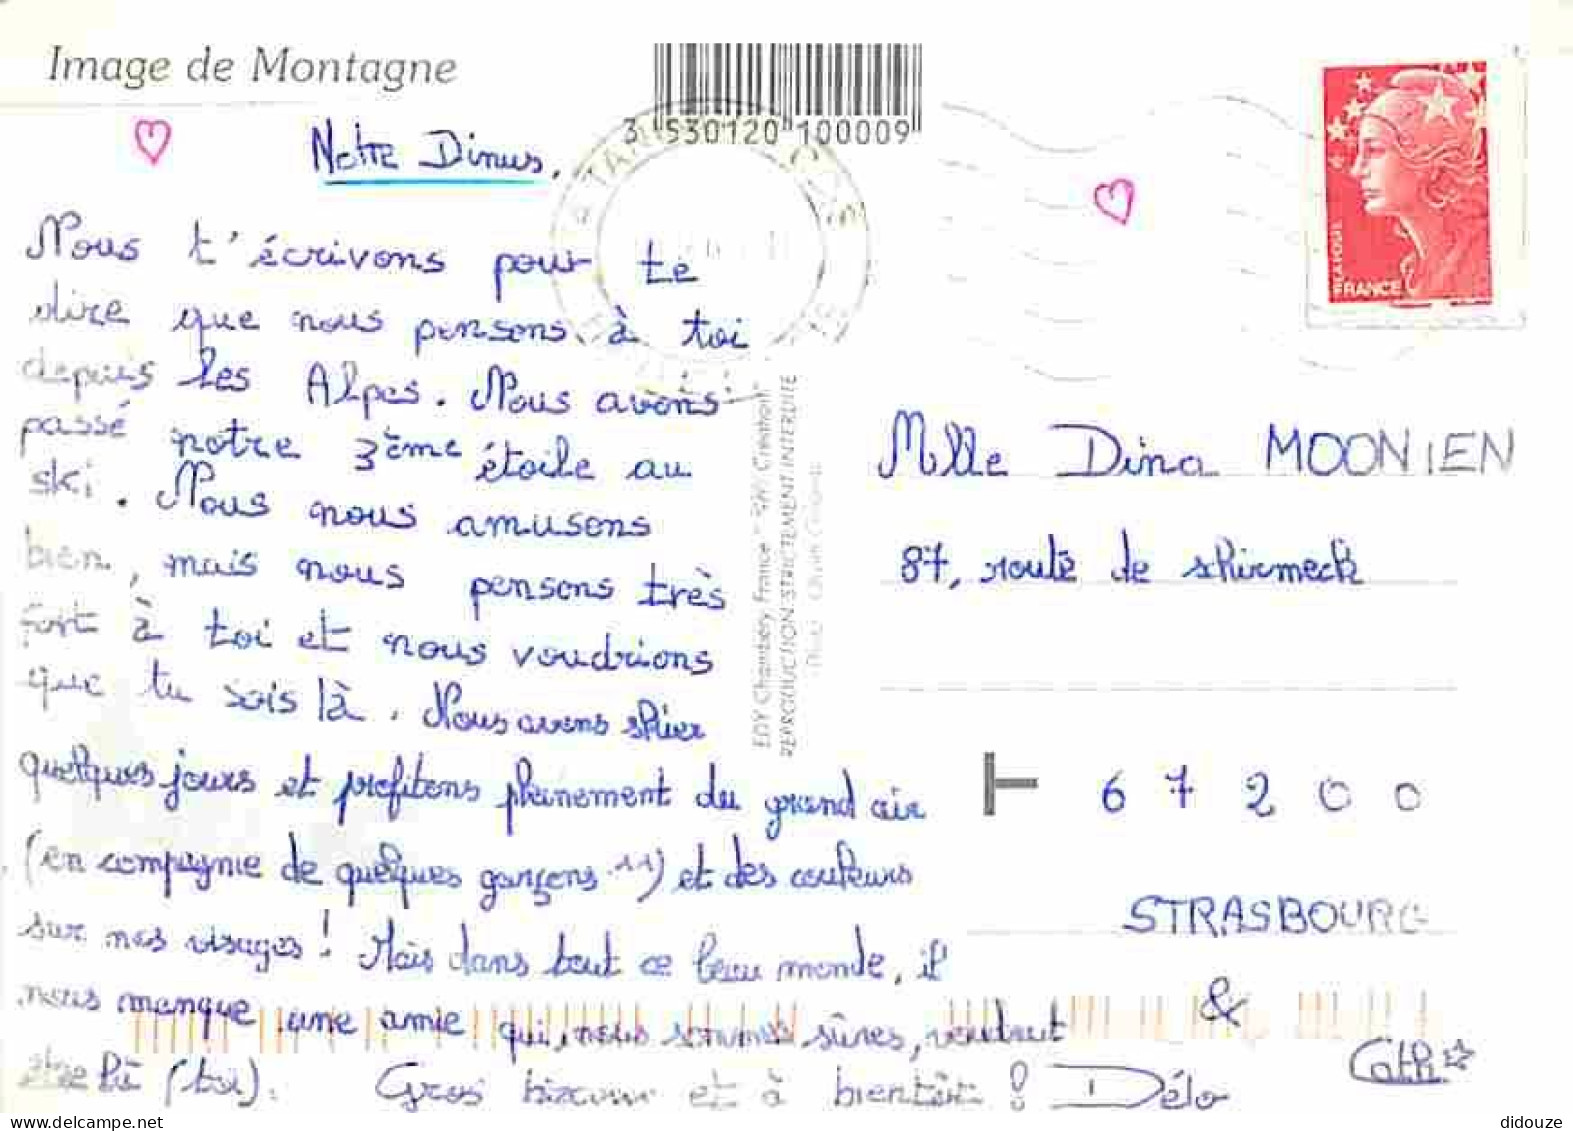 Image de Montagne
3 530120 100009
Notre Dinus,
Nous t'écrivons pour te
dire que nous pensons à toi
depuis les Alpes. Nous avons
passé notre 3ème étoile au
ski. Nous nous amusons
bien, mais nous pensons très
fort à toi et nous voudrions
que tu sois là. Nous avons skier
quelques jours et profitons pleinement du grand air
(en compagnie de quelques garçons ^^) et des couleurs
sur nos visages! Mais dans tout ce beau monde, il
nous manque une amie qui, nous sommes sûres, voudrait
être là (toi). Gros bizoux et à bientôt! Délo
&
Cath
EDY Chambéry France
REPRODUCTION STRICTEMENT INTERDITE
PHILAPOSTE
FRANCE
Mlle Dina MOONIEN
87, route de skirmeck
67200
STRASBOURG
didouze